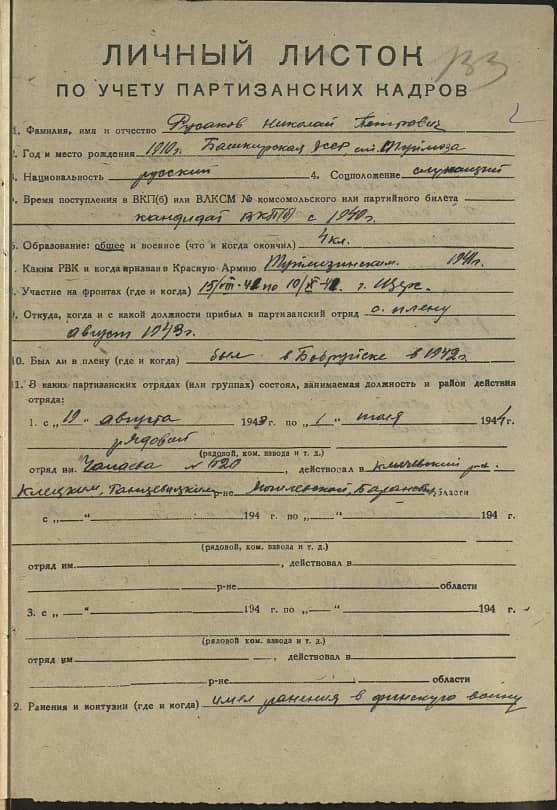 133
2
ЛИЧНЫЙ ЛИСТОК
ПО УЧЕТУ ПАРТИЗАНСКИХ КАДРОВ
1. Фамилия, имя и отчество Русаков Николай Петрович
2. Год и место рождения 1910 г. Башкирская
3. Национальность русский 4. Соцположение служащий
5. Время поступления в ВКП(б) или ВЛКСМ № комсомольского или партийного билета
кандидат ВКП(б) с 1940 г.
6. Образование: общее и военное (что и когда окончил) 4 кл.
7. Каким РВК и когда призван в Красную Армию Туймазинским 1941 г.
8. Участие на фронтах (где и когда) 15/VIII-42 по 10/XI-42 г.
9. Откуда, когда и с какой должности прибыл в партизанский отряд с плену
август 1943 г.
10. Был ли в плену (где и когда) был в Бобруйске в 1942 г.
11. В каких партизанских отрядах (или группах) состоял, занимаемая должность и район действия
отряда:
1. с „19" августа 1943 г. по „1" июля 1944 г.
рядовой
(рядовой, ком. взвода и т. д.)
отряд им. Чапаева № 620, действовал в Кличевский р-н.
Клецким, Ганцевицким р-не Могилевской, Баранов. области
с „ " 194 г. по „ " 194 г.
(рядовой, ком. взвода и т. д.)
отряд им. , действовал в
р-не области
3. с „ " 194 г. по „ " 194 г.
(рядовой, ком. взвода и т. д.)
отряд им , действовал в
р-не области
2. Ранения и контузии (где и когда) имел ранения в финскую войну